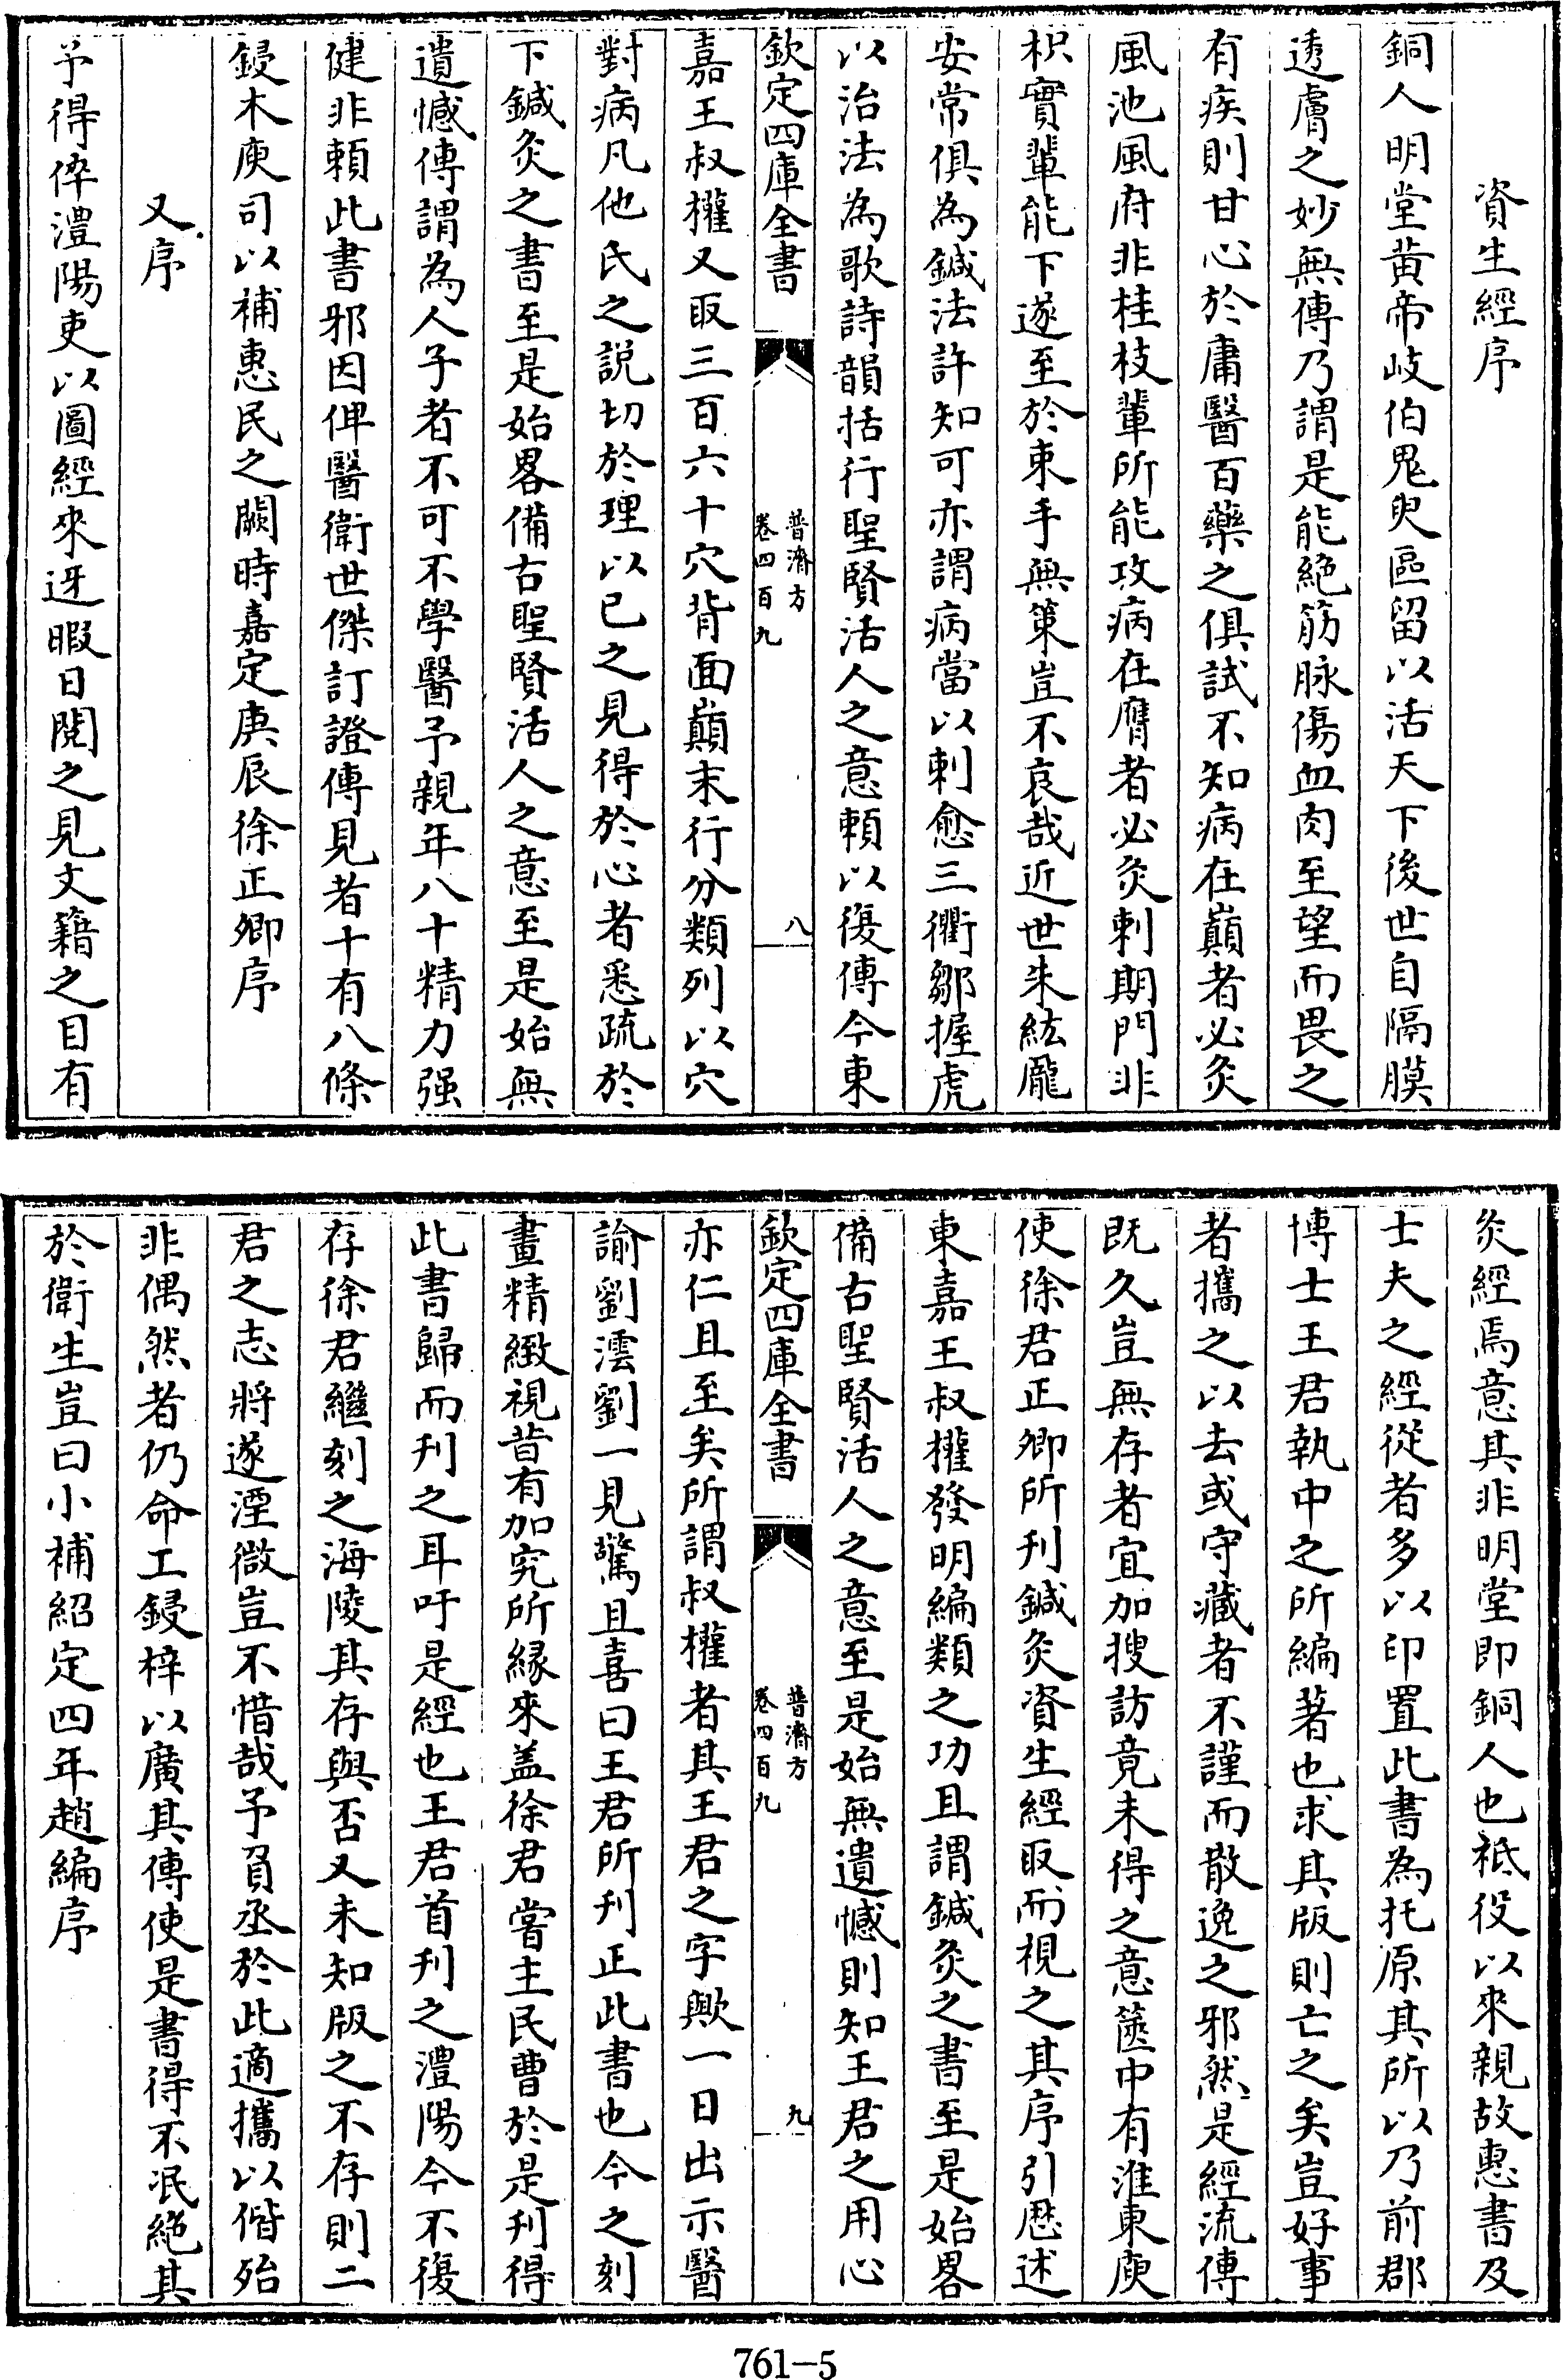 資生經序
銅人明堂黄帝岐伯鬼臾區留以活天下後世自隔膜
透膚之妙無傳乃謂是能絶筋脉傷血肉至望而畏之
有疾則甘心於庸醫百藥之俱試不知病在巔者必灸
風池風府非桂枝輩所能攻病在膺者必灸刺期門非
枳實輩能下遂至於束手無策豈不哀哉近世朱紘龎
安常俱為鍼法許知可亦謂病當以刺愈三衢鄒握虎
以治法為歌詩韻括行聖賢活人之意頼以復傳今東
欽定四庫全書
普濟方
卷四百九
八
嘉王叔權又取三百六十穴背面巔末行分類列以穴
對病凡他氏之説切於理以已之見得於心者悉疏於
下鍼灸之書至是始畧備古聖賢活人之意至是始無
遺憾傳謂為人子者不可不學醫予親年八十精力强
健非頼此書邪因俾醫衛世傑訂證傳見者十有八條
鋟木庾司以補惠民之闕時嘉定庚辰徐正卿序
又序
予得倅澧陽吏以圖經來迓暇日閱之見文籍之目有
灸經焉意其非明堂即銅人也祗役以來親故惠書及
士夫之經從者多以印置此書為托原其所以乃前郡
博士王君執中之所編著也求其版則亡之矣豈好事
者攜之以去或守藏者不謹而散逸之邪然是經流傳
既久豈無存者宜加搜訪竟未得之意篋中有淮東庾
使徐君正卿所刋鍼灸資生經取而視之其序引歴述
東嘉王叔權發明編類之功且謂鍼灸之書至是始畧
備古聖賢活人之意至是始無遺憾則知王君之用心
欽定四庫全書
普濟方
卷四百九
九
亦仁且至矣所謂叔權者其王君之字歟一日出示醫
諭劉澐劉一見驚且喜曰王君所刋正此書也今之刻
畫精緻視昔有加究所縁來盖徐君嘗主民曹於是刋得
此書歸而刋之耳吁是經也王君首刋之澧陽今不復
存徐君繼刻之海陵其存與否又未知版之不存則二
君之志將遂湮微豈不惜哉予負丞於此適攜以偕殆
非偶然者仍命工鋟梓以廣其傳使是書得不泯絶其
於衛生豈曰小補紹定四年趙編序
761—5